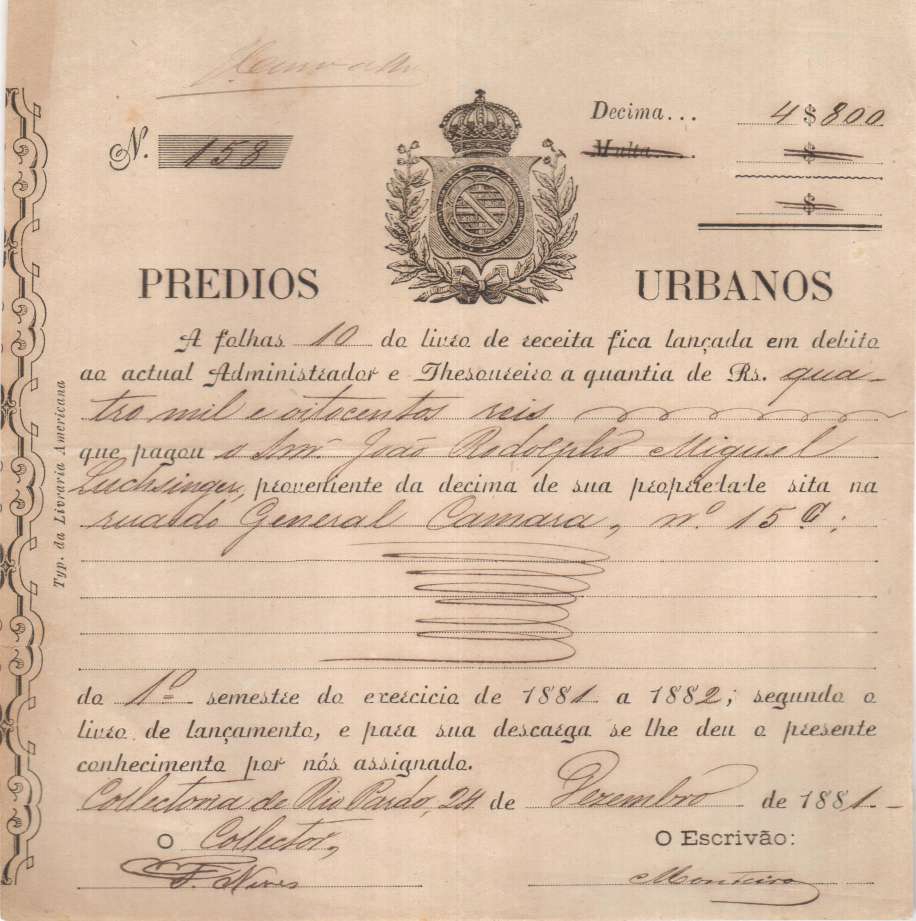 Decima... 4$800
N. 158
Multa... $
$
PREDIOS URBANOS
A folhas 10 do livro de receita fica lançada em debito
ao actual Administrador e Thesoureiro a quantia de Rs. qua-
tro mil e oitocentos reis
que pagou o Snr. João Rodolpho Miguel
Luchsinger, proveniente da decima de sua propriedade sita na
rua do General Camara, nº 15
do 1º semestre do exercicio de 1881 a 1882; segundo o
livro de lançamento, e para sua descarga se lhe deu o presente
conhecimento por nós assignado.
Collectoria de Rio Pardo, 24 de Dezembro de 1881
O Collector, O Escrivão:
F. Neves Monteiro
Typ. da Livraria Americana